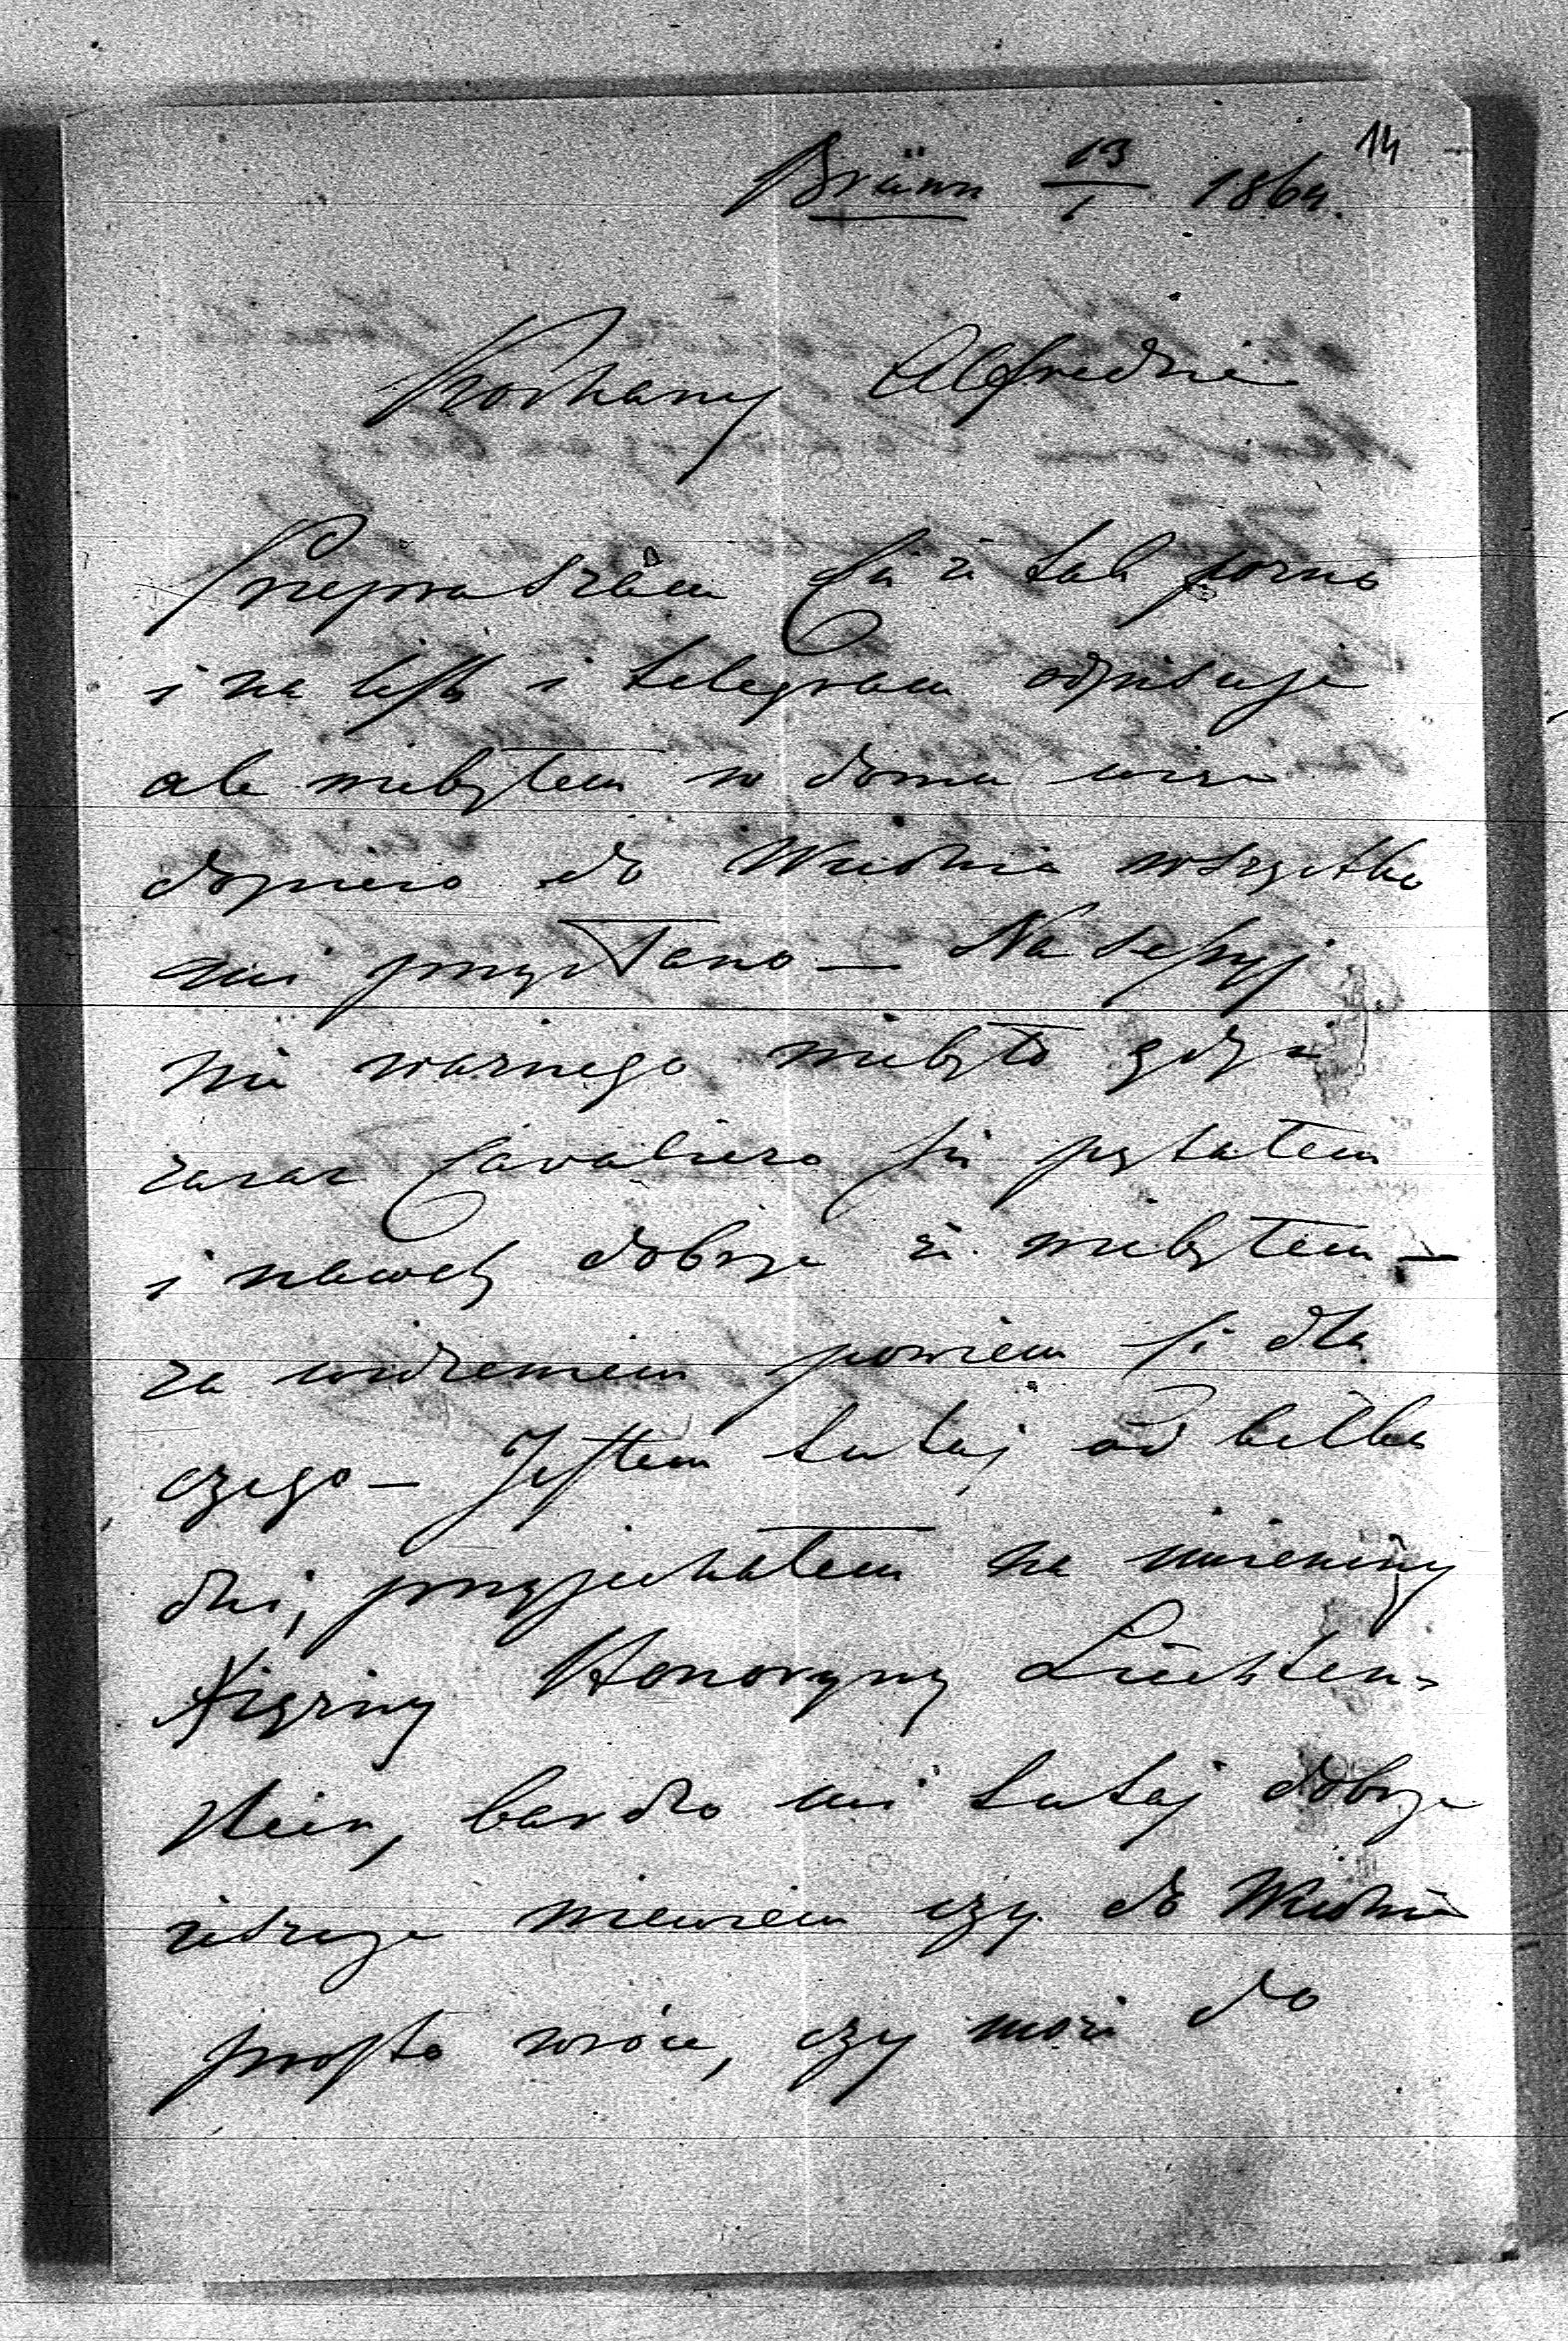 14
Brünn 13/1 1864.
Kochany Alfredzie
Przepraszam Cię że tak pozno
i na list i telegram odpisuje
ale niebyłem w domu wiec
dopiero do Wiednia wszystko
mi przysłano — Na sessyj
nic waznego niebyło gdyz
zaraz Cavaliera się pytałem
i nawet dobrze że niebyłem —
za widzeniem powiem Ci dla
czego — Jestem tutaj od kilku
dni, przyjechałem na imieniny
Xięzny Honoryny Liechten-
stein, bardzo mi tutaj dobrze
niewiem czy do Wiednia
prosto wróce, czy może do